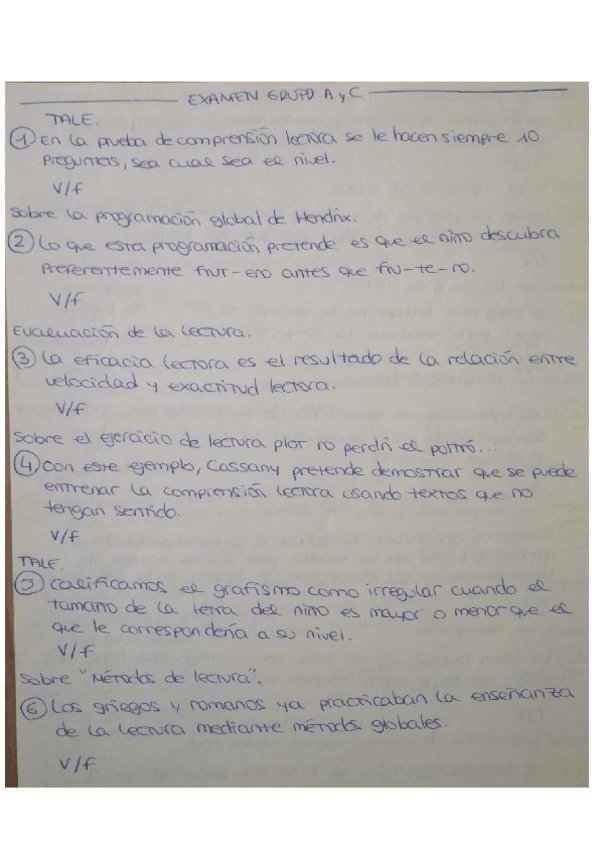 EXAMEN GRUPO A y C
TALE.
① En la prueba de comprensión lectora se le hacen siempre 10
preguntas, sea cual sea el nivel.
V/f
Sobre la programación global de Hendrix.
② Lo que esta programación pretende es que el niño descubra
preferentemente frut-ero antes que fru-te-ro.
V/f
Evaluación de la lectura.
③ La eficacia lectora es el resultado de la relación entre
velocidad y exactitud lectora.
V/f
Sobre el ejercicio de lectura plot no perdñ el potnó...
④ Con este ejemplo, Cassany pretende demostrar que se puede
entrenar la comprensión lectora usando textos que no
tengan sentido.
V/f
TALE.
⑤ Calificamos el grafismo como irregular cuando el
tamaño de la letra del niño es mayor o menor que el
que le correspondería a su nivel.
V/f
Sobre "Métodos de lectura".
⑥ Los griegos y romanos ya practicaban la enseñanza
de la lectura mediante métodos globales.
V/f